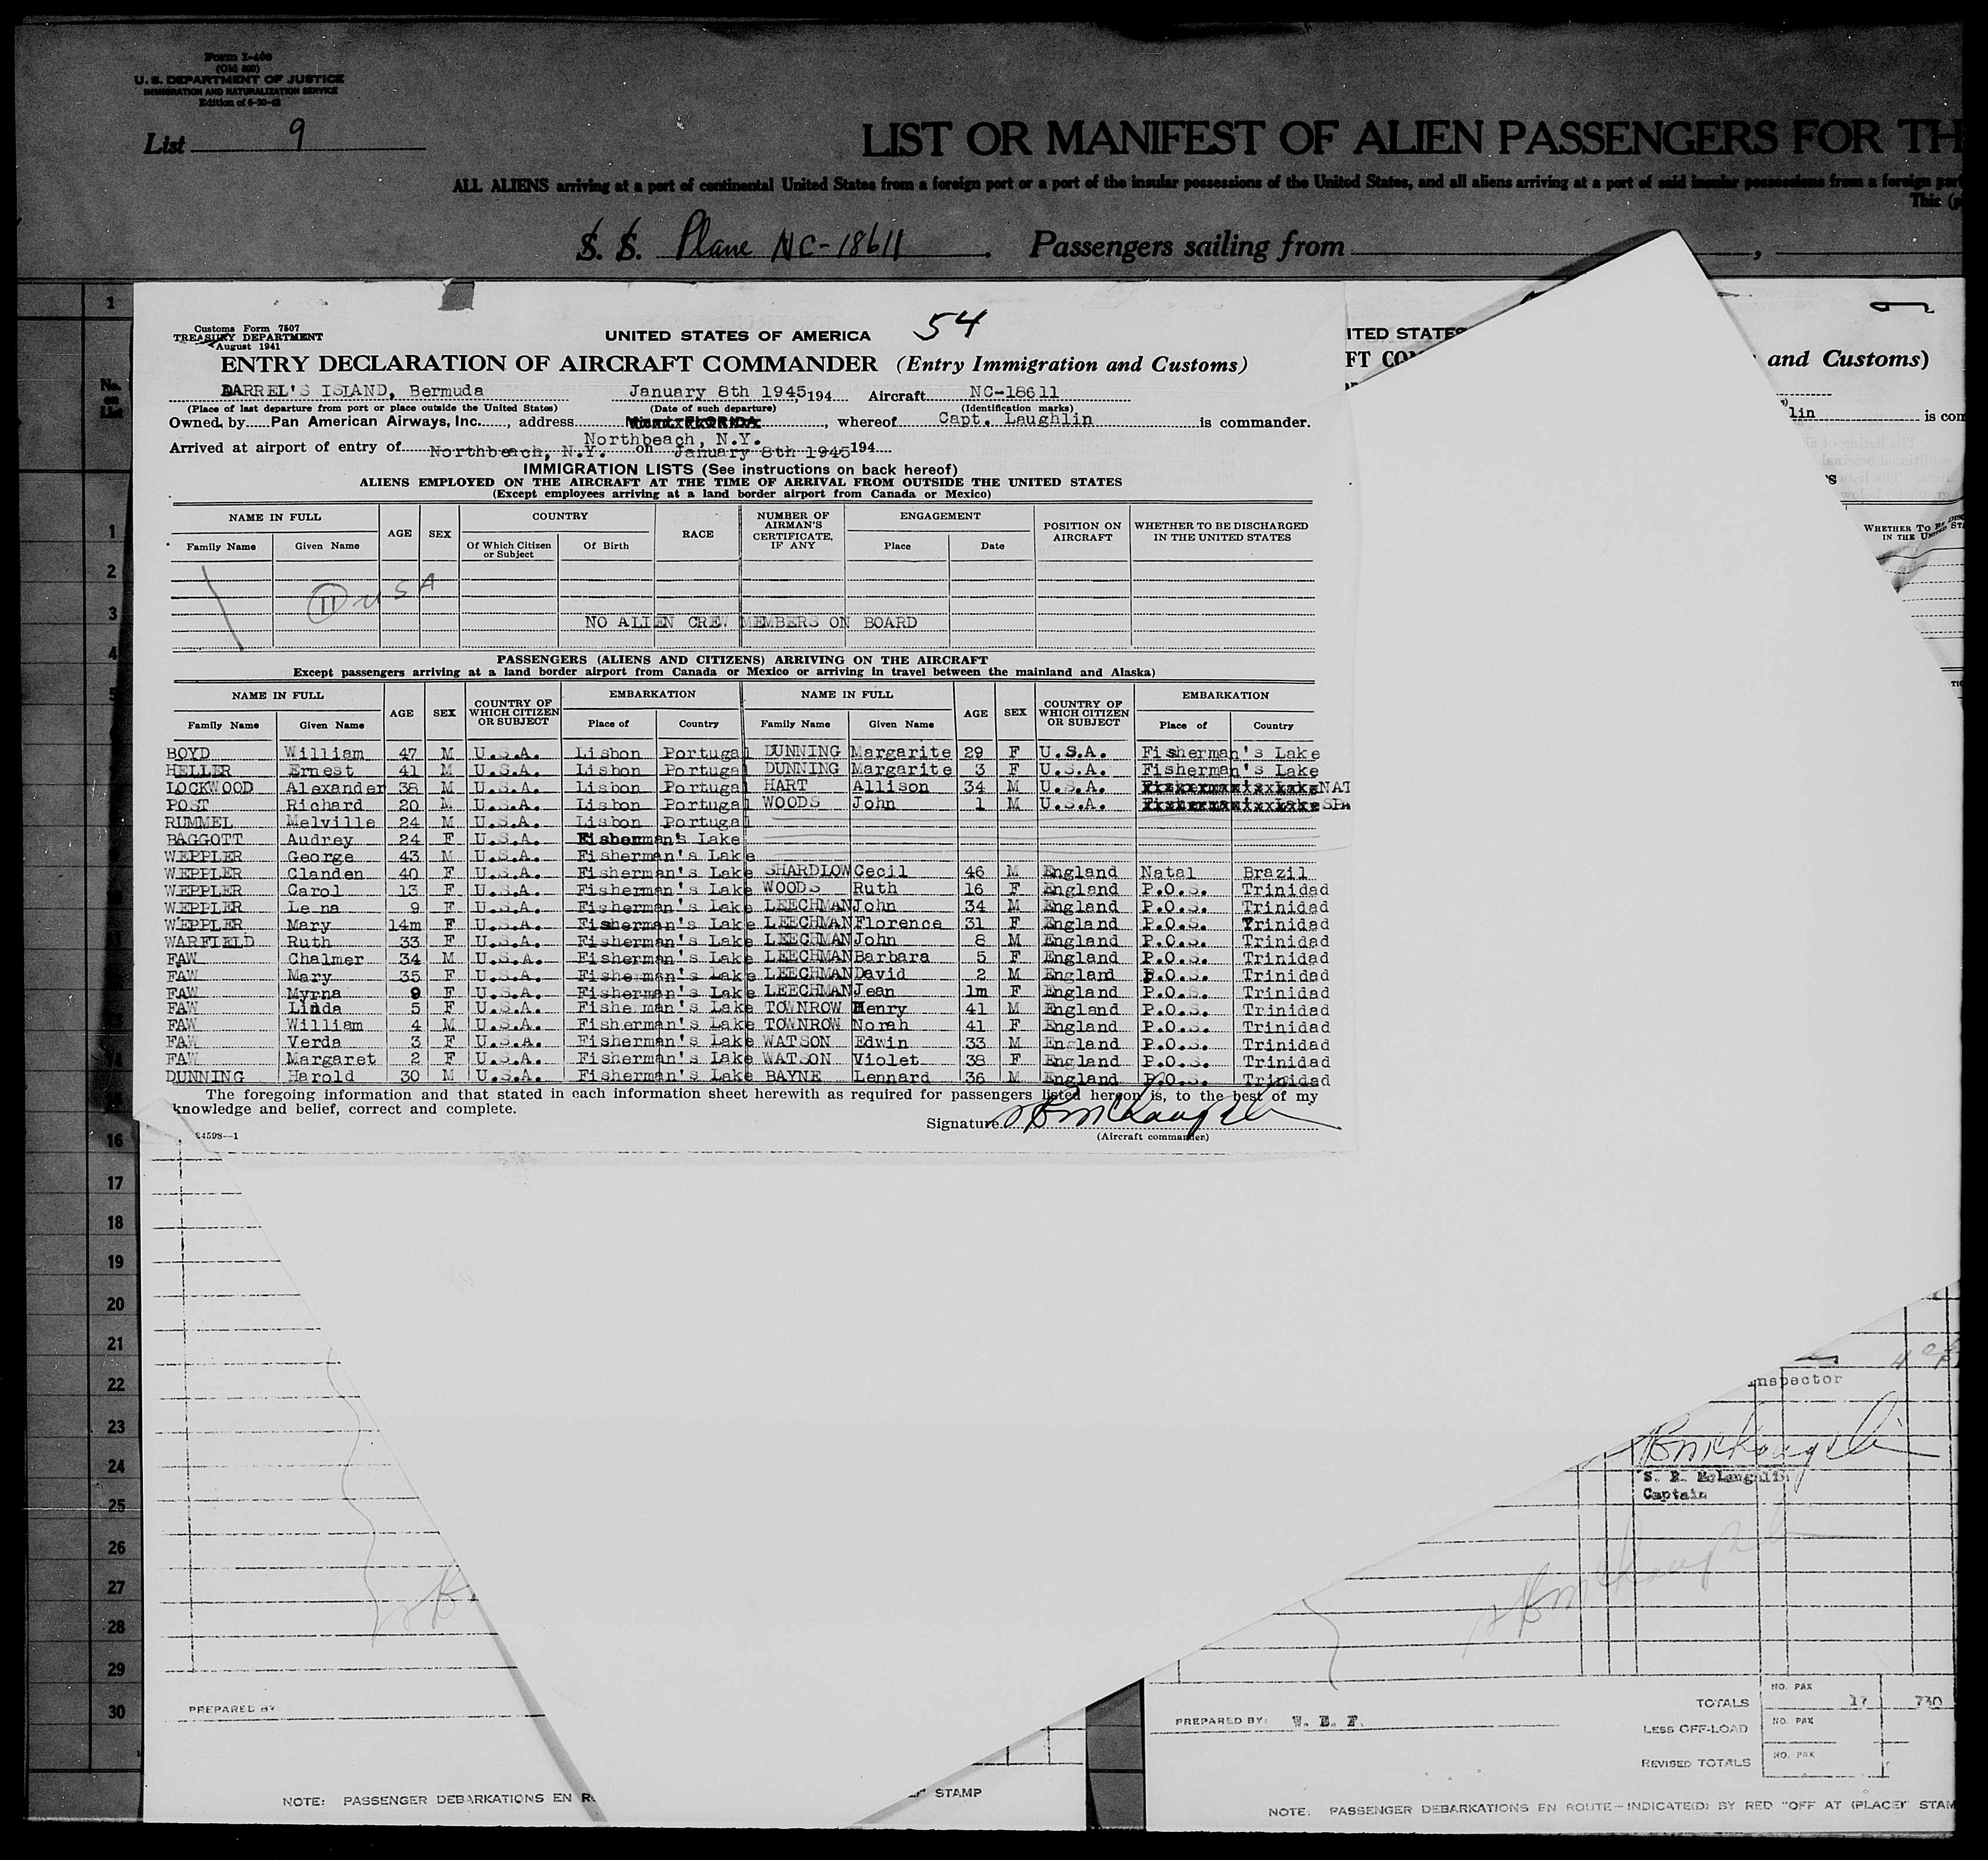 Form I-466
(Old 500)
U. S. DEPARTMENT OF JUSTICE
IMMIGRATION AND NATURALIZATION SERVICE
List 9
LIST OR MANIFEST OF ALIEN PASSENGERS FOR TH
ALL ALIENS arriving at a port of continental United States from a foreign port or a port of the insular possessions of the United States, and all aliens arriving at a port of said insular possessions from a foreign por
This (p
S. S. Plane NC-18611 . Passengers sailing from ,
Customs Form 7507
TREASURY DEPARTMENT
August 1941
UNITED STATES OF AMERICA 54
ENTRY DECLARATION OF AIRCRAFT COMMANDER (Entry Immigration and Customs)
DARREL'S ISLAND, Bermuda January 8th 1945, 194 Aircraft NC-18611
(Place of last departure from port or place outside the United States) (Date of such departure) (Identification marks)
Owned by Pan American Airways, Inc., address Miami FLORIDA, whereof Capt. Laughlin is commander.
Northbeach, N.Y.
Arrived at airport of entry of Northbeach, N.Y. on January 8th 1945 194
IMMIGRATION LISTS (See instructions on back hereof)
ALIENS EMPLOYED ON THE AIRCRAFT AT THE TIME OF ARRIVAL FROM OUTSIDE THE UNITED STATES
(Except employees arriving at a land border airport from Canada or Mexico)
NAME IN FULL AGE SEX COUNTRY RACE NUMBER OF AIRMAN'S CERTIFICATE, IF ANY ENGAGEMENT POSITION ON AIRCRAFT WHETHER TO BE DISCHARGED IN THE UNITED STATES
Family Name Given Name Of Which Citizen or Subject Of Birth Place Date
11 USA
NO ALIEN CREW MEMBERS ON BOARD
PASSENGERS (ALIENS AND CITIZENS) ARRIVING ON THE AIRCRAFT
Except passengers arriving at a land border airport from Canada or Mexico or arriving in travel between the mainland and Alaska)
NAME IN FULL AGE SEX COUNTRY OF WHICH CITIZEN OR SUBJECT EMBARKATION NAME IN FULL AGE SEX COUNTRY OF WHICH CITIZEN OR SUBJECT EMBARKATION
Family Name Given Name Place of Country Family Name Given Name Place of Country
BOYD William 47 M U.S.A. Lisbon Portugal DUNNING Margarite 29 F U.S.A. Fisherman's Lake
HELLER Ernest 41 M U.S.A. Lisbon Portugal DUNNING Margarite 3 F U.S.A. Fisherman's Lake
LOCKWOOD Alexander 38 M U.S.A. Lisbon Portugal HART Allison 34 M U.S.A. NAT
POST Richard 20 M U.S.A. Lisbon Portugal WOODS John 1 M U.S.A. SPA
RUMMEL Melville 24 M U.S.A. Lisbon Portugal
BAGGOTT Audrey 24 F U.S.A. Fisherman's Lake
WEPPLER George 43 M U.S.A. Fisherman's Lake
WEPPLER Clanden 40 F U.S.A. Fisherman's Lake SHARDLOW Cecil 46 M England Natal Brazil
WEPPLER Carol 13 F U.S.A. Fisherman's Lake WOODS Ruth 16 F England P.O.S. Trinidad
WEPPLER Lena 9 F U.S.A. Fisherman's Lake LEECHMAN John 34 M England P.O.S. Trinidad
WEPPLER Mary 14m F U.S.A. Fisherman's Lake LEECHMAN Florence 31 F England P.O.S. Trinidad
WARFIELD Ruth 33 F U.S.A. Fisherman's Lake LEECHMAN John 8 M England P.O.S. Trinidad
FAW Chalmer 34 M U.S.A. Fisherman's Lake LEECHMAN Barbara 5 F England P.O.S. Trinidad
FAW Mary 35 F U.S.A. Fisherman's Lake LEECHMAN David 2 M England P.O.S. Trinidad
FAW Myrna 9 F U.S.A. Fisherman's Lake LEECHMAN Jean 1m F England P.O.S. Trinidad
FAW Linda 5 F U.S.A. Fishe man's Lake TOWNROW Henry 41 M England P.O.S. Trinidad
FAW William 4 M U.S.A. Fisherman's Lake TOWNROW Norah 41 F England P.O.S. Trinidad
FAW Verda 3 F U.S.A. Fisherman's Lake WATSON Edwin 33 M England P.O.S. Trinidad
FAW Margaret 2 F U.S.A. Fisherman's Lake WATSON Violet 38 F England P.O.S. Trinidad
DUNNING Harold 30 M U.S.A. Fisherman's Lake BAYNE Lennard 36 M England P.O.S. Trinidad
The foregoing information and that stated in each information sheet herewith as required for passengers listed hereon is, to the best of my
knowledge and belief, correct and complete.
Signature
(Aircraft commander)
64598—1
ITED STATES
FT COM and Customs)
lin is com
WHETHER TO BE
IN THE UN
No. on List
1
1
2
3
4
16
17
18
19
20
21
22
23
24
25
26
27
28
29
30
nspector
S. B. McLaughlin
Captain
PREPARED BY
PREPARED BY: W. E. F.
TOTALS NO. PAX 17 730
LESS OFF-LOAD NO. PAX
REVISED TOTALS NO. PAX
NOTE: PASSENGER DEBARKATIONS EN R STAMP
NOTE: PASSENGER DEBARKATIONS EN ROUTE—INDICATE(D) BY RED "OFF AT (PLACE)" STAM